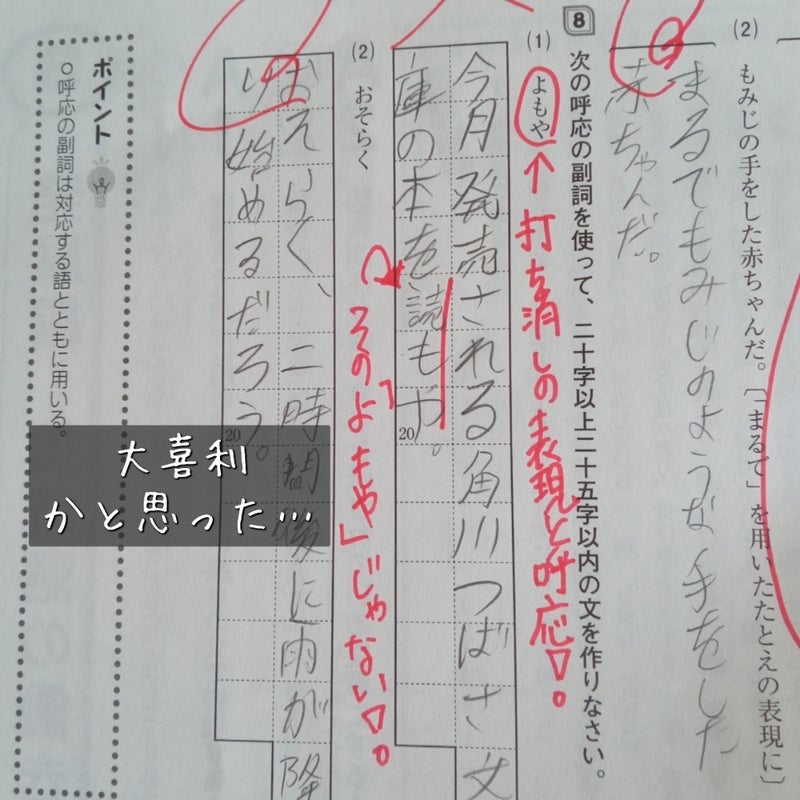 (2) もみじの手をした赤ちゃんだ。〔「まるで」を用いたたとえの表現に〕
まるでもみじのような手をした
赤ちゃんだ。
8 次の呼応の副詞を使って、二十字以上二十五字以内の文を作りなさい。
(1) よもや
↑打ち消しの表現と呼応!。
今月発売される角川つばさ文
庫の本を読もや。
20
そのよ「もや」じゃない!。
(2) おそらく
おそらく、二時間後に雨が降
り始めるだろう。
20
ポイント
○呼応の副詞は対応する語とともに用いる。
大喜利
かと思った…